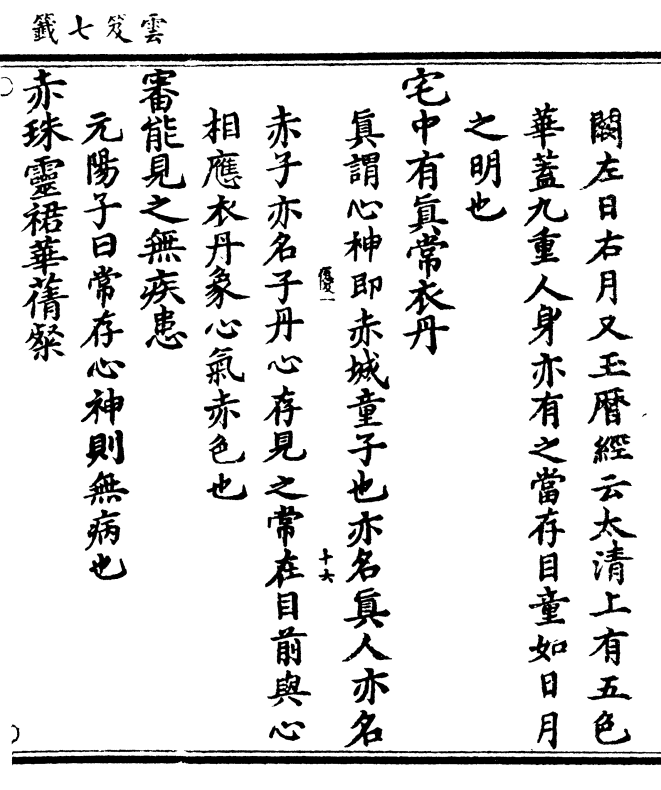 雲笈七籤
闕左日右月又玉曆經云太清上有五色
華蓋九重人身亦有之當存目童如日月
之明也
宅中有眞常衣丹
眞謂心神即赤城童子也亦名眞人亦名
優一
十六
赤子亦名子丹心存見之常在目前與心
相應衣丹象心氣赤色也
審能見之無疾患
元陽子曰常存心神則無病也
赤珠靈裙華蒨粲